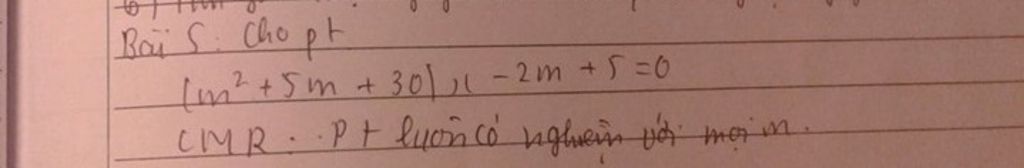 Bài 5: Cho pt
(m² + 5m + 30)x - 2m + 5 = 0
CMR: pt luôn có nghiệm với mọi m.